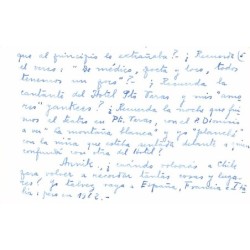 que al principio le extrañaba?- ¿Recuerda
el mar: " De médico, poeta y loco, todos
tenemos un poco"? ¿Recuerda la
cantante del Hotel Pto Varas y mis "amo
res" yankees? ¿Recuerda la noche que fui
mos al teatro en Pto. Varas, con el
a ver "La montaña blanca" y yo
con la niña que estaba sentada delante
confundí con otra del Hotel!
¿cuándo volverás a Chile
para volver a recordar tantas cosas y luga
res? Yo talvez vaya a España, Francia e Ita
lia, por en 1962.-